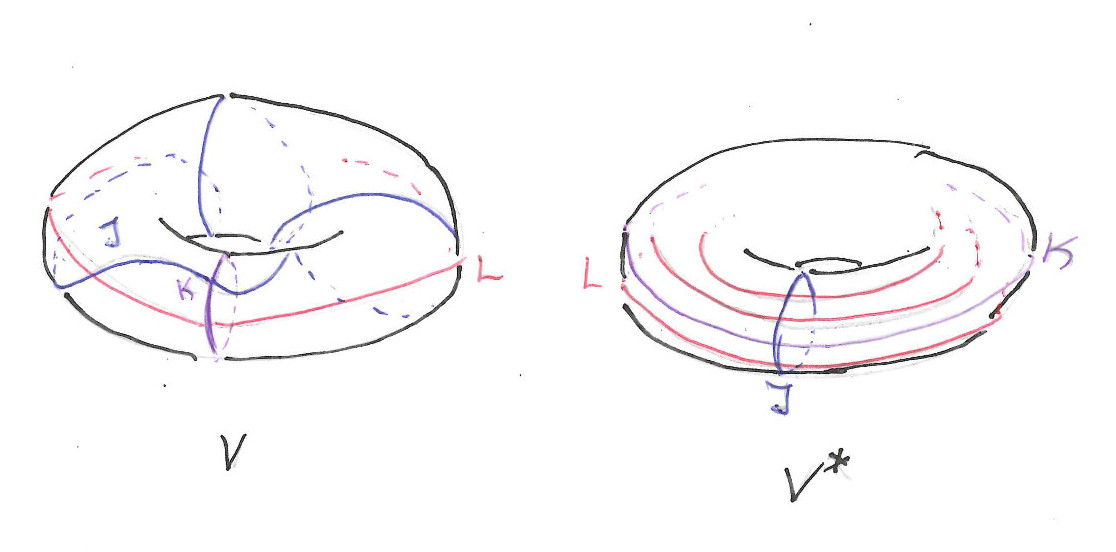 J
K
L
V
L
K
J
V*